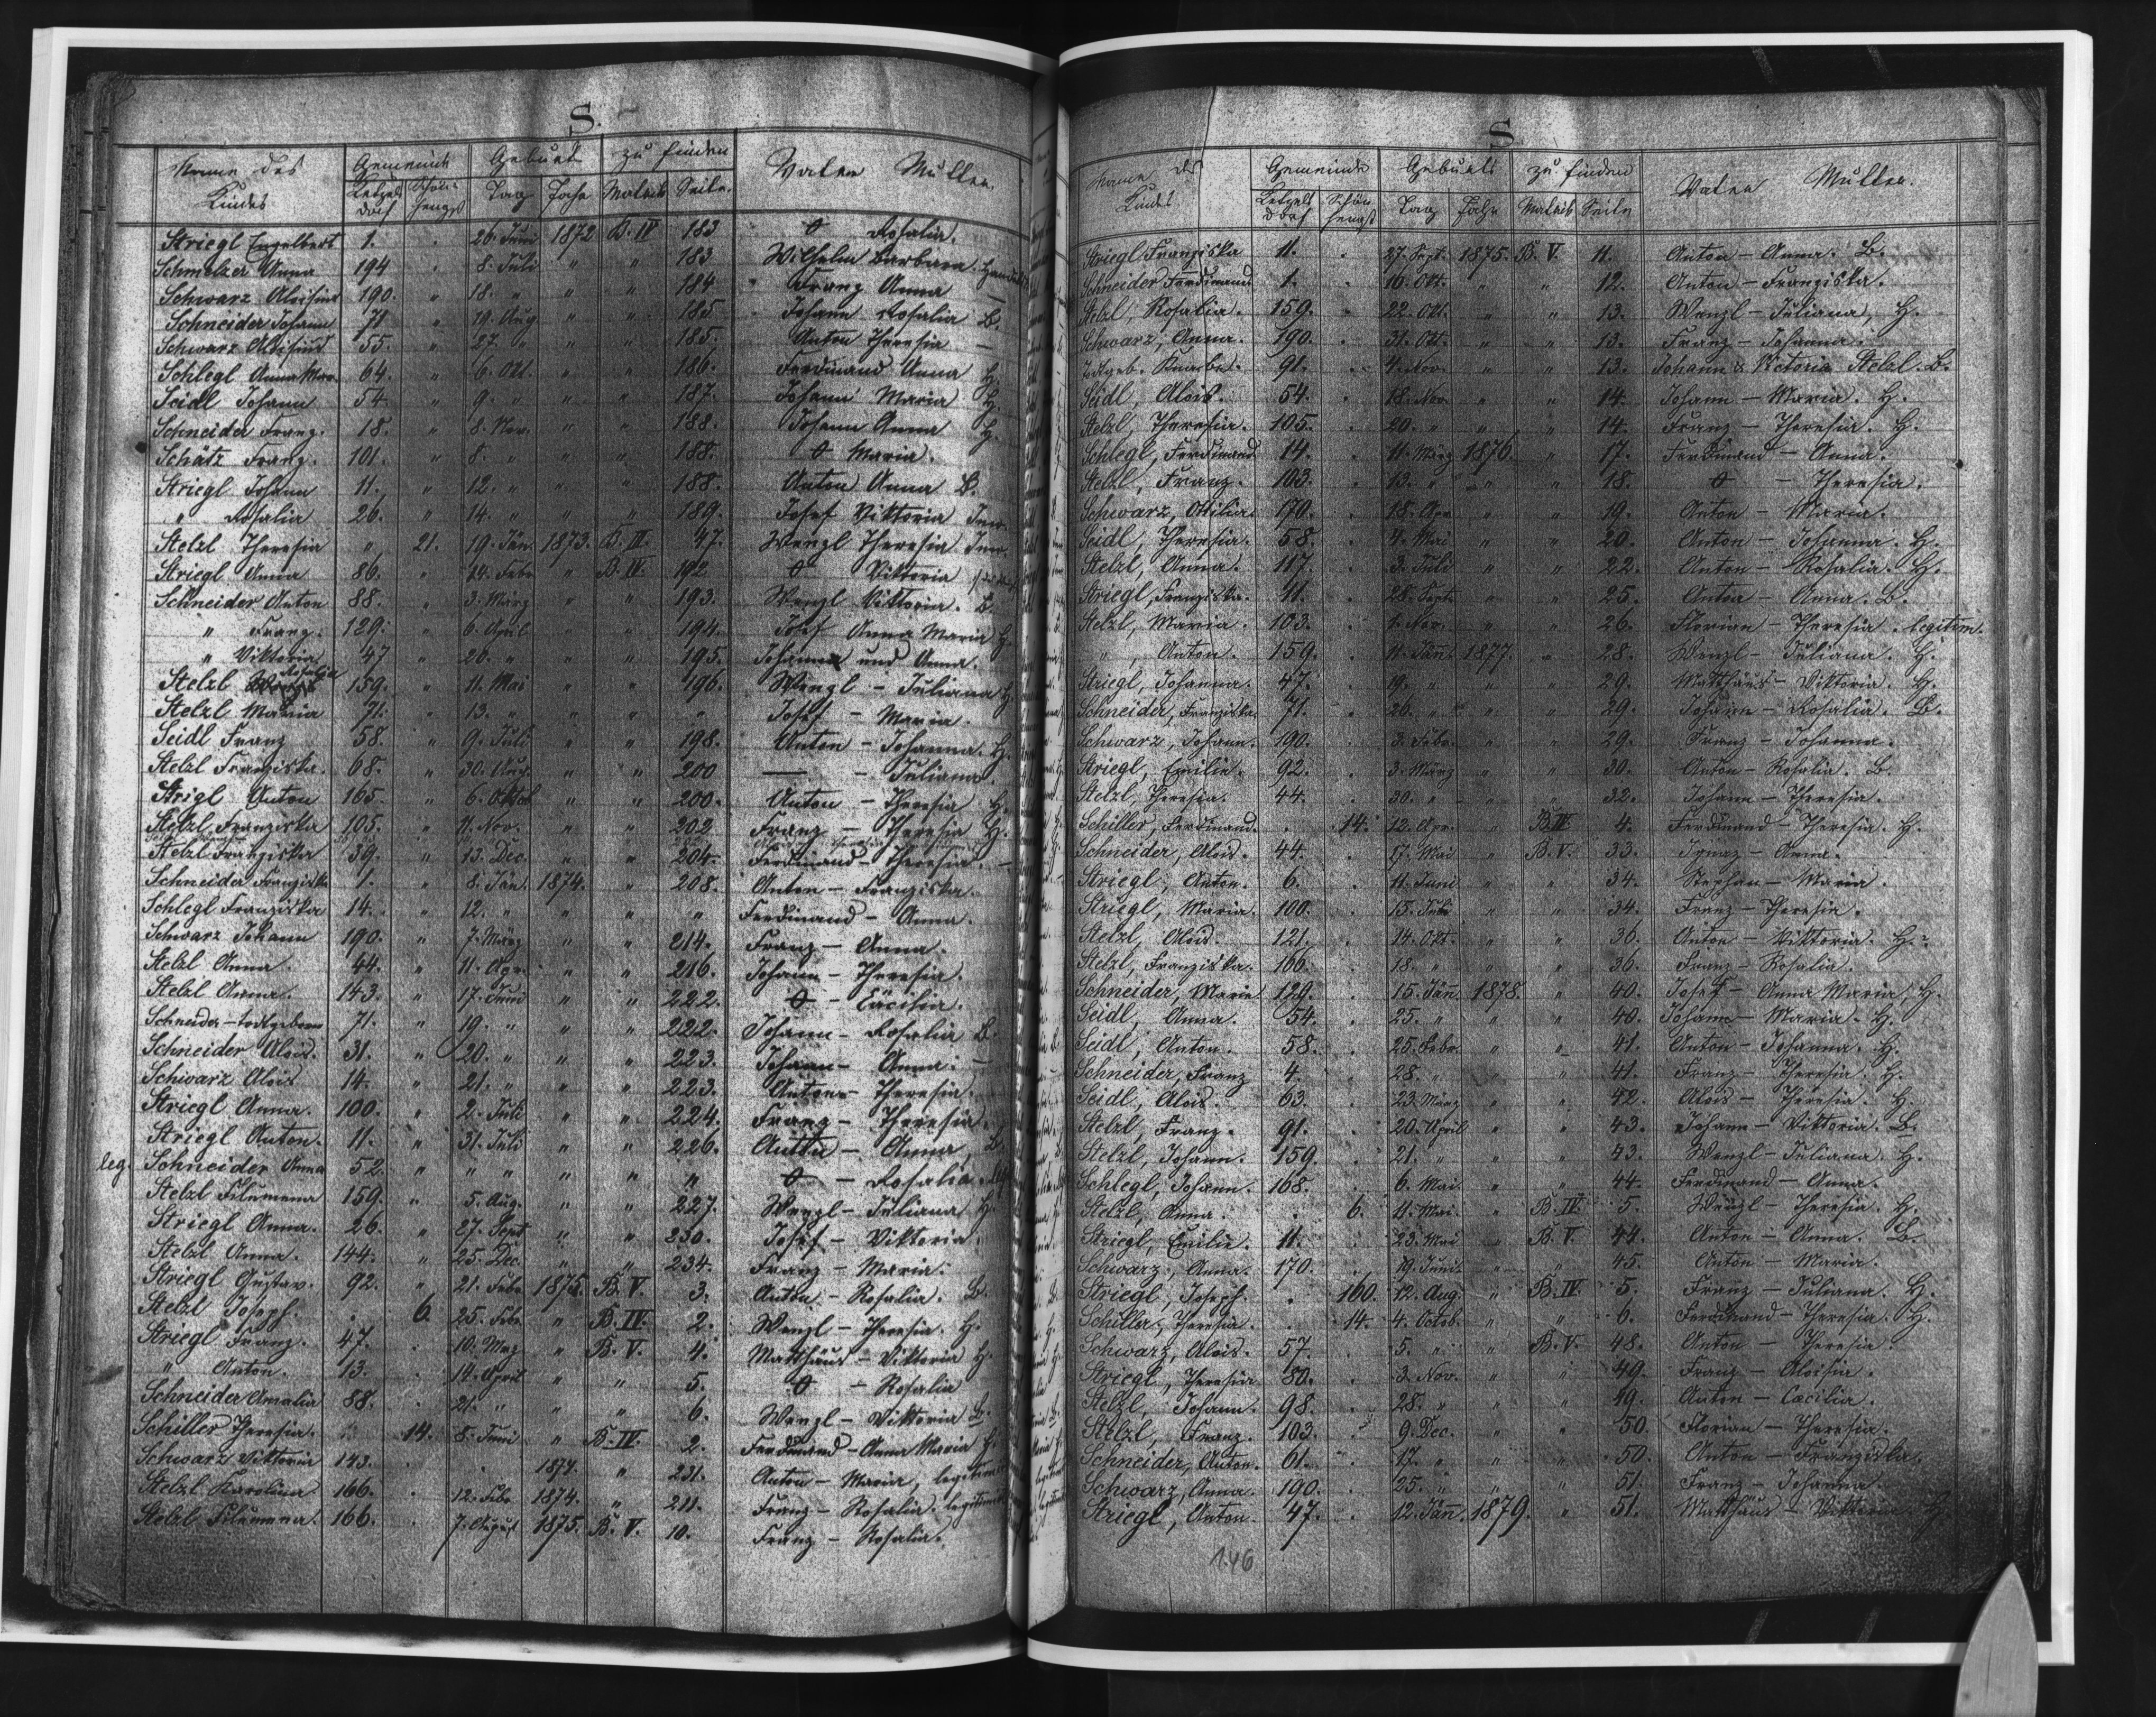 S.
Name des Kindes Gemeinde Geburt zu finden Vater Mutter.
Ketzelsdorf Schönhengst Tag Jahr Matrik Seite.
Striegl Engelbert 1. 26. Juni 1872 B. IV 183 O Rosalia.
Schmelzer Anna 194 " 8. Juli " " 183 Wilhelm Barbara
Schwarz Aloisius 190. " 18. " " " 184 Franz Anna —
Schneider Johann 71 " 19. Aug " " 185 Johann Rosalia B.
Schwarz Aloisius 55. " 27. " " " 185. Anton Theresia —
Schlegl Anna Mar. 64. " 6. Okt. " " 186. Ferdinand Anna H.
Seidl Johann 54 " 9. " " " 187. Johann Maria H.
Schneider Franz. 18. " 8. Nov. " " 188. Johann Anna H.
Schätz Franz. 101. " 8. " " " 188. O Maria.
Striegl Johann 11. " 12. " " " 188. Anton Anna B.
" Rosalia 26. " 14. " " " 189. Josef Viktoria Inw.
Stelzl Theresia " 21. 19. Jän. 1873. B. III. 47. Wenzl Theresia Inw.
Striegl Anna 86. " 14. Febr " B. IV. 192 O Viktoria
Schneider Anton 88. " 3. März " " 193. Wenzl Viktoria. B.
" Franz. 129. " 6. April " " 194. Josef Anna Maria H.
" Viktoria 47 " 26. " " " 195. Johann und Anna.
Stelzl Rosalia 159. " 11. Mai " " 196. Wenzl – Juliana H.
Stelzl Maria 71. " 13. " " " " Josef – Maria.
Seidl Franz 58. " 9. Juli " " 198. Anton – Johanna. H.
Stelzl Franziska. 68. " 30. Aug. " " 200 — – Juliana.
Strigl Anton 165. " 6. Oktob " " 200. Anton – Theresia H.
Stelzl Franziska 105. " 11. Nov. " " 202 Franz – Theresia H.
Stelzl Franziska 39. " 13. Dec. " " 204. Ferdinand – Theresia. –
Schneider Franziska 1. " 8. Jän. 1874. " 208. Anton – Franziska.
Schlegl Franziska 14. " 12. " " " " Ferdinand – Anna.
Schwarz Johann 190. " 7. März " " 214. Franz – Anna.
Stelzl Anna. 44. " 11. Apr. " " 216. Johann – Theresia.
Stelzl Anna. 143. " 17. Juni " " 222. O – Cäcilia.
Schneider – todtgeboren 71. " 19. " " " 222. Johann – Rosalia B.
Schneider Alois. 31. " 20. " " " 223. Johann – Anna. –
Schwarz Alois 14. " 21. " " " 223. Anton – Theresia.
Striegl Anna. 100. " 2. Juli " " 224. Franz – Theresia.
Striegl Anton. 11. " 31. Juli " " 226. Anton – Anna, B.
leg. Schneider Anna 52. " " " " " " O – Rosalia
Stelzl Filumena 159. " 5. Aug. " " 227. Wenzl – Juliana H.
Striegl Anna. 26. " 27. Sept " " 230. Josef – Viktoria.
Stelzl Anna. 144. " 25. Dec. " " 234. Franz – Maria.
Striegl Gustav. 92. " 21. Febr 1875. B. V. 3. Anton – Rosalia. B.
Stelzl Joseph. . 6. 25. Febr " B. IV. 2. Wenzl – Theresia. H.
Striegl Franz. 47. . 10. Mrz " B. V. 4. Matthäus – Viktoria H.
" Anton. 13. . 14. April " " 5. O – Rosalia
Schneider Amalia 88. . 21. " " " 6. Wenzl – Viktoria B.
Schiller Theresia. 14. 8. Juni " B. IV. 2. Ferdinand – Anna Maria H.
Schwarz Viktoria 143. . . 1874. " 231. Anton – Maria, legitimirt
Stelzl Karolina 166. . 12. Febr 1874. " 211. Franz – Rosalia. legitimirt
Stelzl Filumena. 166. . 7. August 1875. B. V. 10. Franz – Rosalia.
S
Name des Kindes Gemeinde Geburts zu finden Vater Mutter.
Ketzelsdorf Schönhengst Tag Jahr Matrik Seite
Striegl Franziska 11. . 27. Sept. 1875. B. V. 11. Anton – Anna. B.
Schneider Ferdinand 1. . 10. Okt. " " 12. Anton – Franziska.
Stelzl, Rosalia. 159. . 22. Okt. " " 13. Wenzl – Juliana, H.
Schwarz, Anna. 190. . 31. Okt. " " 13. Franz – Johanna.
todtgeb. Knabe. 91. . 4. Nov. " " 13. Johann & Victoria Stelzl. B.
Seidl, Alois. 54. . 18. Nov. " " 14. Johann – Maria. H.
Stelzl, Theresia. 105. . 20. " " " 14. Franz – Theresia. H.
Schlegl, Ferdinand 14. . 11. März 1876. " 17. Ferdinand – Anna.
Stelzl, Franz. 103. . 13. " " " 18. O – Theresia.
Schwarz, Ottilia 170. . 18. Apr " " 19. Anton – Maria.
Seidl, Theresia. 58. . 4. Mai " " 20. Anton – Johanna. H.
Stelzl, Anna. 117. . 3. Juli " " 22. Anton – Rosalia. H.
Striegl, Franziska. 11. . 28. Sept. " " 25. Anton – Anna. B.
Stelzl, Maria. 103. . 1. Nov. " " 26. Florian – Theresia. legitim.
" , Anton. 159. . 11. Jän. 1877. " 28. Wenzl – Juliana. H.
Striegl, Johanna. 47. . 19. " " " 29. Matthäus – Viktoria. H.
Schneider, Franziska. 71. . 26. " " " 29. Johann – Rosalia. B.
Schwarz, Johann. 190. . 3. Febr. " " 29. Franz – Johanna.
Striegl, Emilie. 92. . 3. März " " 30. Anton – Rosalia. B.
Stelzl, Theresia. 44. . 30. " " 32. Johann – Theresia.
Schiller, Ferdinand. . 14. 12. Apr. " B. IV. 4. Ferdinand – Theresia. H.
Schneider, Alois. 44. . 17. Mai " B. V. 33. Ignaz – Anna.
Striegl, Anton. 6. . 11. Juni " " 34. Stephan – Maria.
Striegl, Maria. 100. . 15. Juli " " 34. Franz – Theresia.
Stelzl, Alois. 121. . 14. Okt. " " 36. Anton – Viktoria. H.
Stelzl, Franziska. 166. . 18. " " " 36. Franz – Rosalia.
Schneider, Marie 129. . 15. Jän. 1878. " 40. Josef – Anna Maria, H.
Seidl, Anna. 54. . 25. " " " 40. Johann – Maria. H.
Seidl, Anton. 58. . 25. Febr. " " 41. Anton – Johanna. H.
Schneider, Franz 4. . 28. " " " 41. Franz – Theresia. H.
Seidl, Alois. 63. . 23. März " " 42. Alois – Theresia. H.
Stelzl, Franz. 91. . 20. April " " 43. Johann – Viktoria. B.
Stelzl, Johann. 159. . 21. " " " 43. Wenzl – Juliana. H.
Schlegl, Johann. 168. . 6. Mai. " " 44. Ferdinand – Anna.
Stelzl, Anna. . 6. 11. Mai. " B. IV. 5. Wenzl – Theresia. H.
Striegl, Emilie. 11. . 23. Mai " B. V. 44. Anton – Anna. B.
Schwarz, Anna. 170. . 19. Juni. " " 45. Anton – Maria.
Striegl, Joseph. . 160. 12. Aug. " B. IV. 5. Franz – Juliana. H.
Schiller, Theresia. . 14. 4. Octob. " " 6. Ferdinand – Theresia. H.
Schwarz, Alois. 57. . 5. " " B. V. 48. Anton – Theresia.
Striegl, Theresia 80. . 3. Nov. " " 49. Franz – Aloisia.
Stelzl, Johann. 98. . 28. " " " 49. Anton – Cæcilia.
Stelzl, Franz. 103. . 9. Dec. " " 50. Florian – Theresia.
Schneider, Anton. 61. . 17. " " " 50. Anton – Franziska.
Schwarz, Anna. 190. . 25. " " " 51. Franz – Johanna.
Striegl, Anton. 47. . 12. Jän. 1879. " 51. Matthäus – Viktoria H.
146